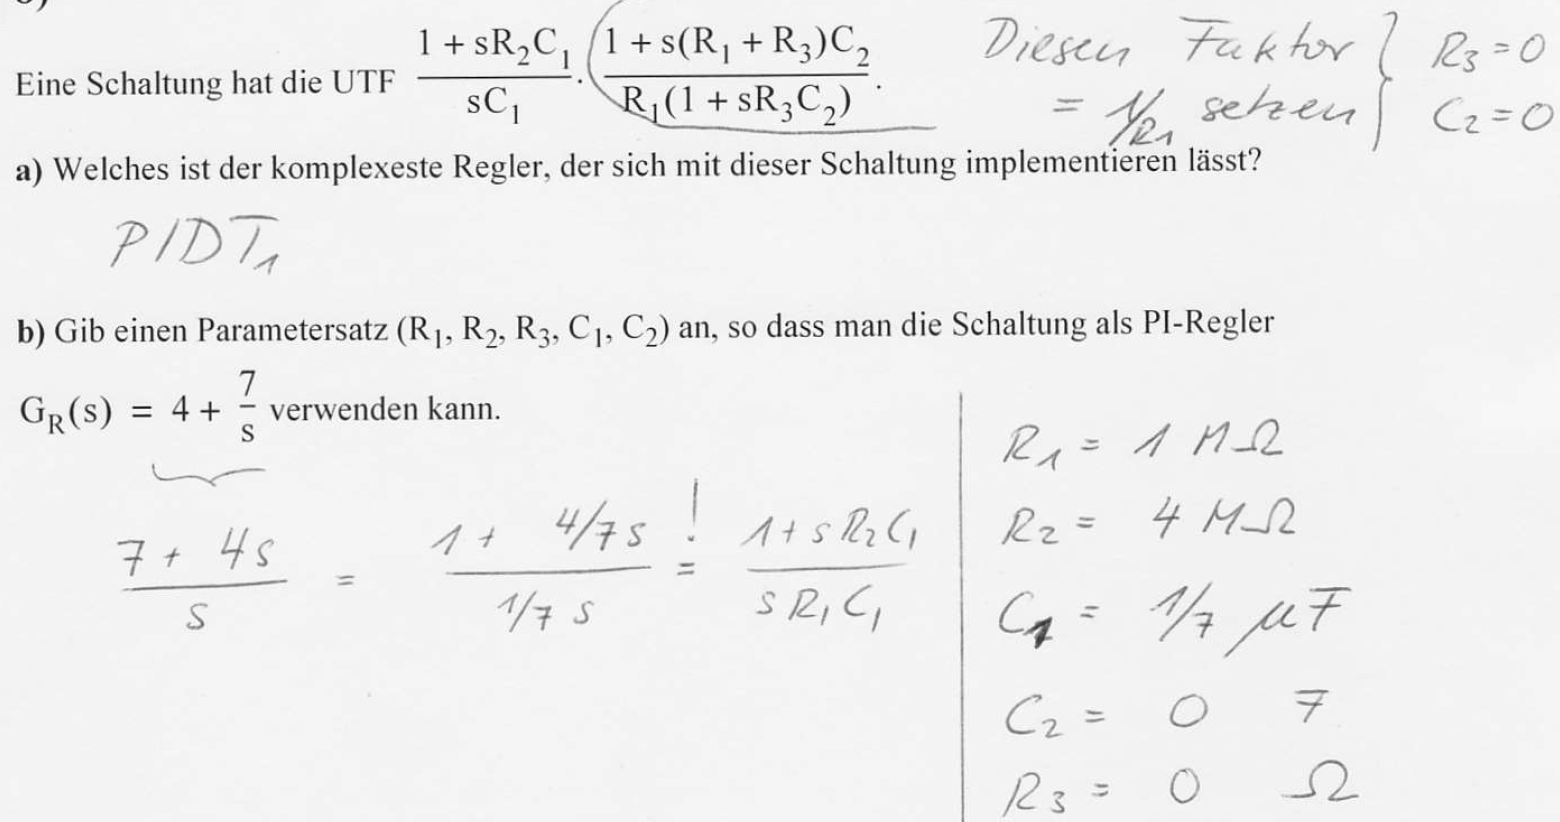 Eine Schaltung hat die UTF (1 + sR₂C₁)/(sC₁) · (1 + s(R₁ + R₃)C₂)/(R₁(1 + sR₃C₂)) .
Diesen Faktor } R₃ = 0
= 1/R₁ setzen } C₂ = 0
a) Welches ist der komplexeste Regler, der sich mit dieser Schaltung implementieren lässt?
PIDT₁
b) Gib einen Parametersatz (R₁, R₂, R₃, C₁, C₂) an, so dass man die Schaltung als PI-Regler
G_R(s) = 4 + 7/s verwenden kann.
(7 + 4s)/s = (1 + 4/7 s)/(1/7 s) =! (1 + sR₂C₁)/(sR₁C₁)
R₁ = 1 MΩ
R₂ = 4 MΩ
C₁ = 1/7 µF
C₂ = 0 F
R₃ = 0 Ω